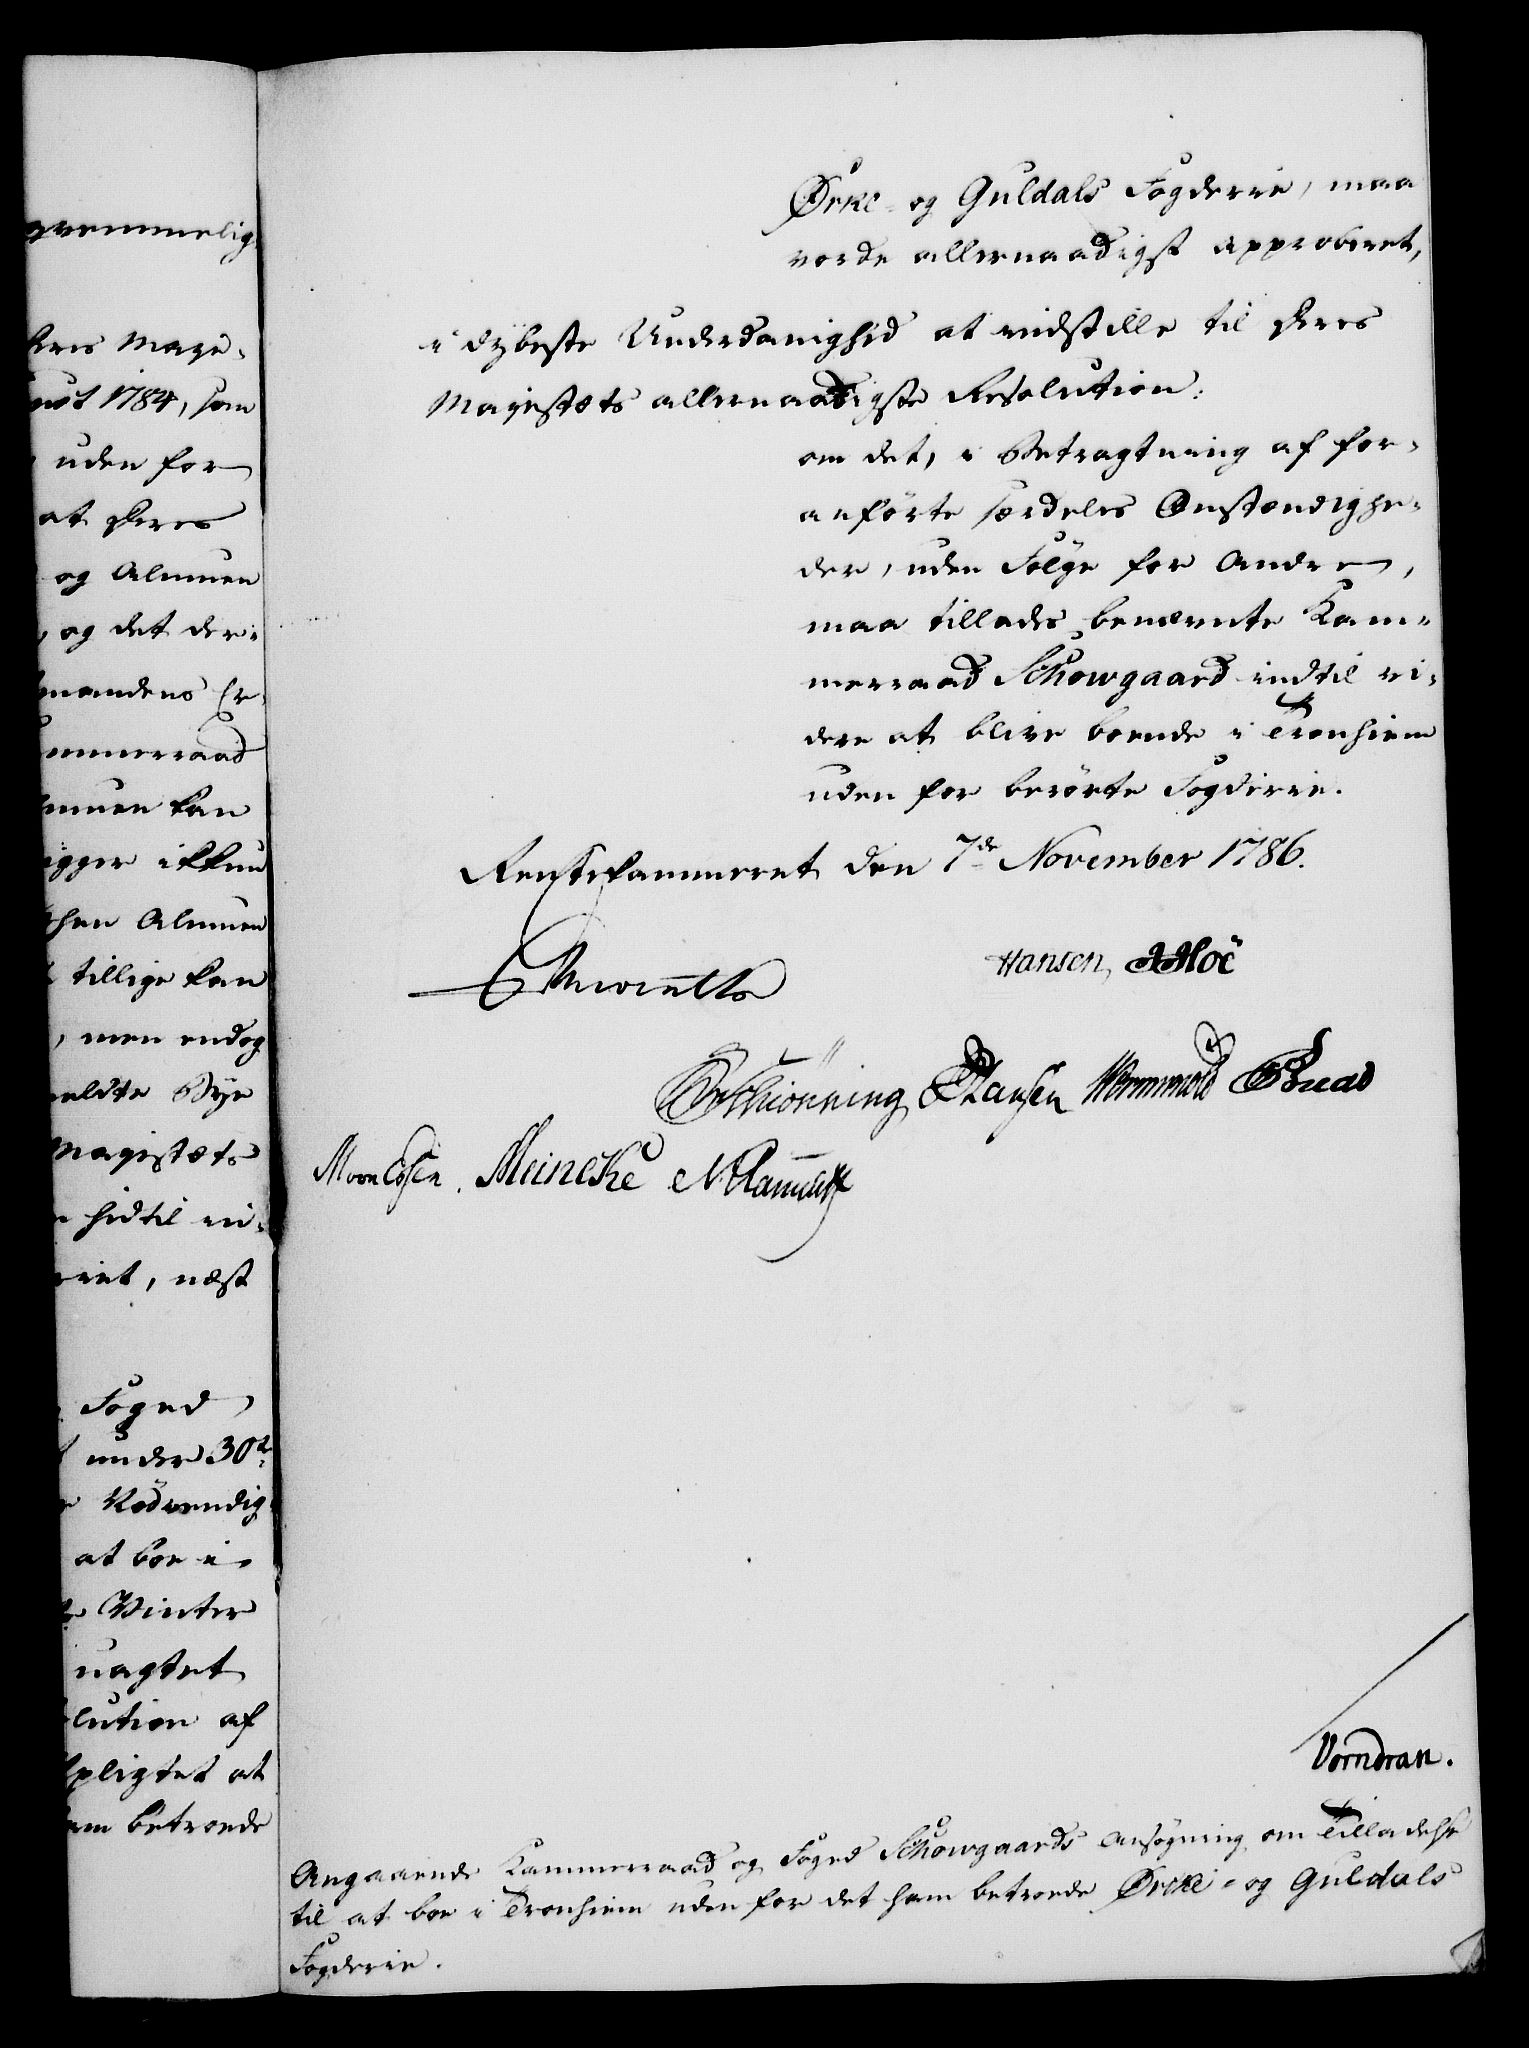 gvemmelig
Deres Maje-
1784, som
uden for
at Deres
og Almuen
, og det der-
mandens Er-
ammerraad
lmuen kan
ligger ikkun
Almuen
tillige kan
, men endog
meldte Bye
Majestæts
hidtil vi-
riet, næst
Foged
under 30te
Nødvendig-
at boe i
Vinter
uagtet
lution af
pligtet at
ham betroede
Ørke- og Guldals Fogderie, maa
vorde allernaadigst approberet,
i dybeste Underdanighed at indstille til Deres
Majestæts allernaadigste Resolution:
om det, i Betragtning af for-
anførte særdeles Omstændighe-
der, uden Følge for Andre,
maa tillades benævnte Kam-
merraad Schowgaard indtil vi-
dere at blive boende i Tronhiem
uden for berørte Fogderie.
Rentekammeret den 7de November 1786.
Hansen,
Schiönning Hansen Wormwold
Meincke
Vorndran.
Angaaende Kammerraad og Foged Schowgaards Ansøgning om Tilladelse
til at boe i Tronhiem uden for det ham betroede Ørke- og Guldals
Fogderie.